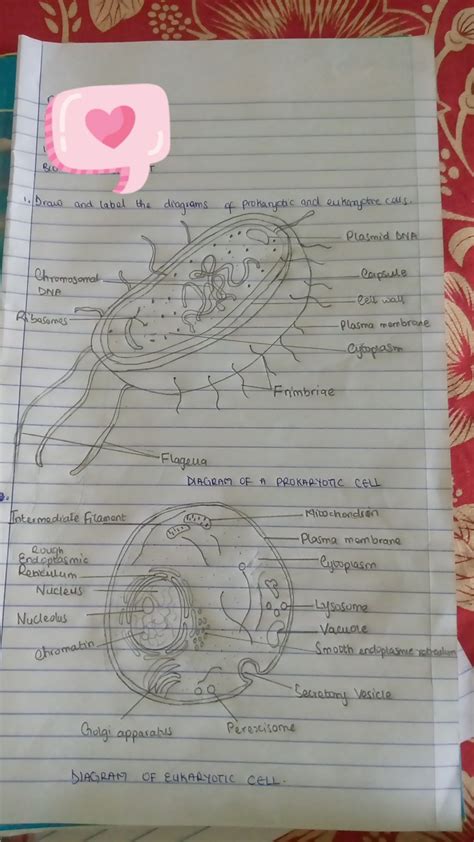 1. Draw and label the diagrams of prokaryotic and eukaryotic cells.
Plasmid DNA
Chromosomal
DNA
Capsule
Cell wall
Ribosomes
Plasma membrane
Cytoplasm
Frimbriae
Flagella
DIAGRAM OF A PROKARYOTIC CELL
Intermediate Filament
Mitochondrion
Plasma membrane
Rough
Endoplasmic
Reticulum
Cytoplasm
Nucleus
Lysosome
Nucleolus
Vacuole
Chromatin
Smooth endoplasmic reticulum
Secretory Vesicle
Golgi apparatus
Peroxisome
DIAGRAM OF EUKARYOTIC CELL.